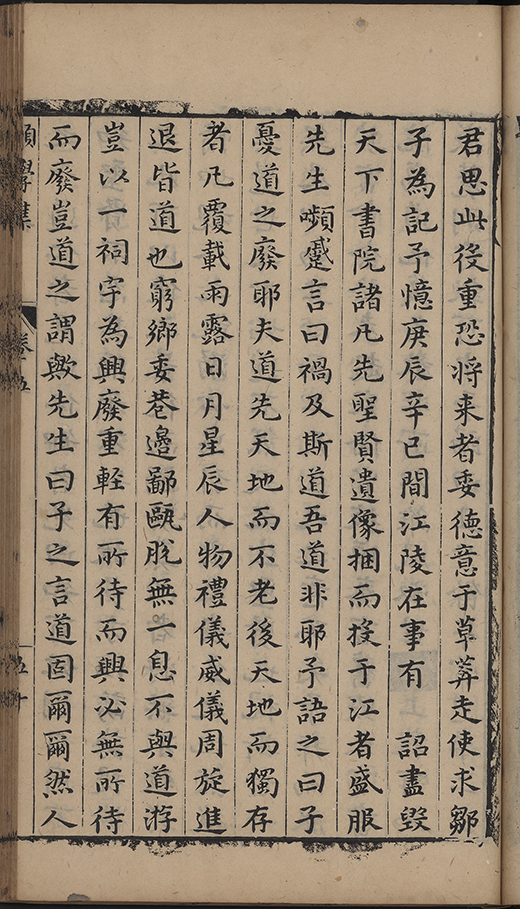 君思此役重恐将来者委德意于草莾走使求鄒
子為記予憶庚辰辛巳間江陵在事有 詔盡毀
天下書院諸凡先聖賢遺像捆而投于江者盛服
先生嚬蹙言曰禍及斯道吾道非耶予語之曰子
憂道之廢耶夫道先天地而不老後天地而獨存
者凡覆載雨露日月星辰人物禮儀威儀周旋進
退皆道也窮鄉委巷邊鄙甌脫無一息不與道游
豈以一祠宇為興廢重輕有所待而興必無所待
而廢豈道之謂歟先生曰子之言道固爾爾然人
願學集 卷五 五十